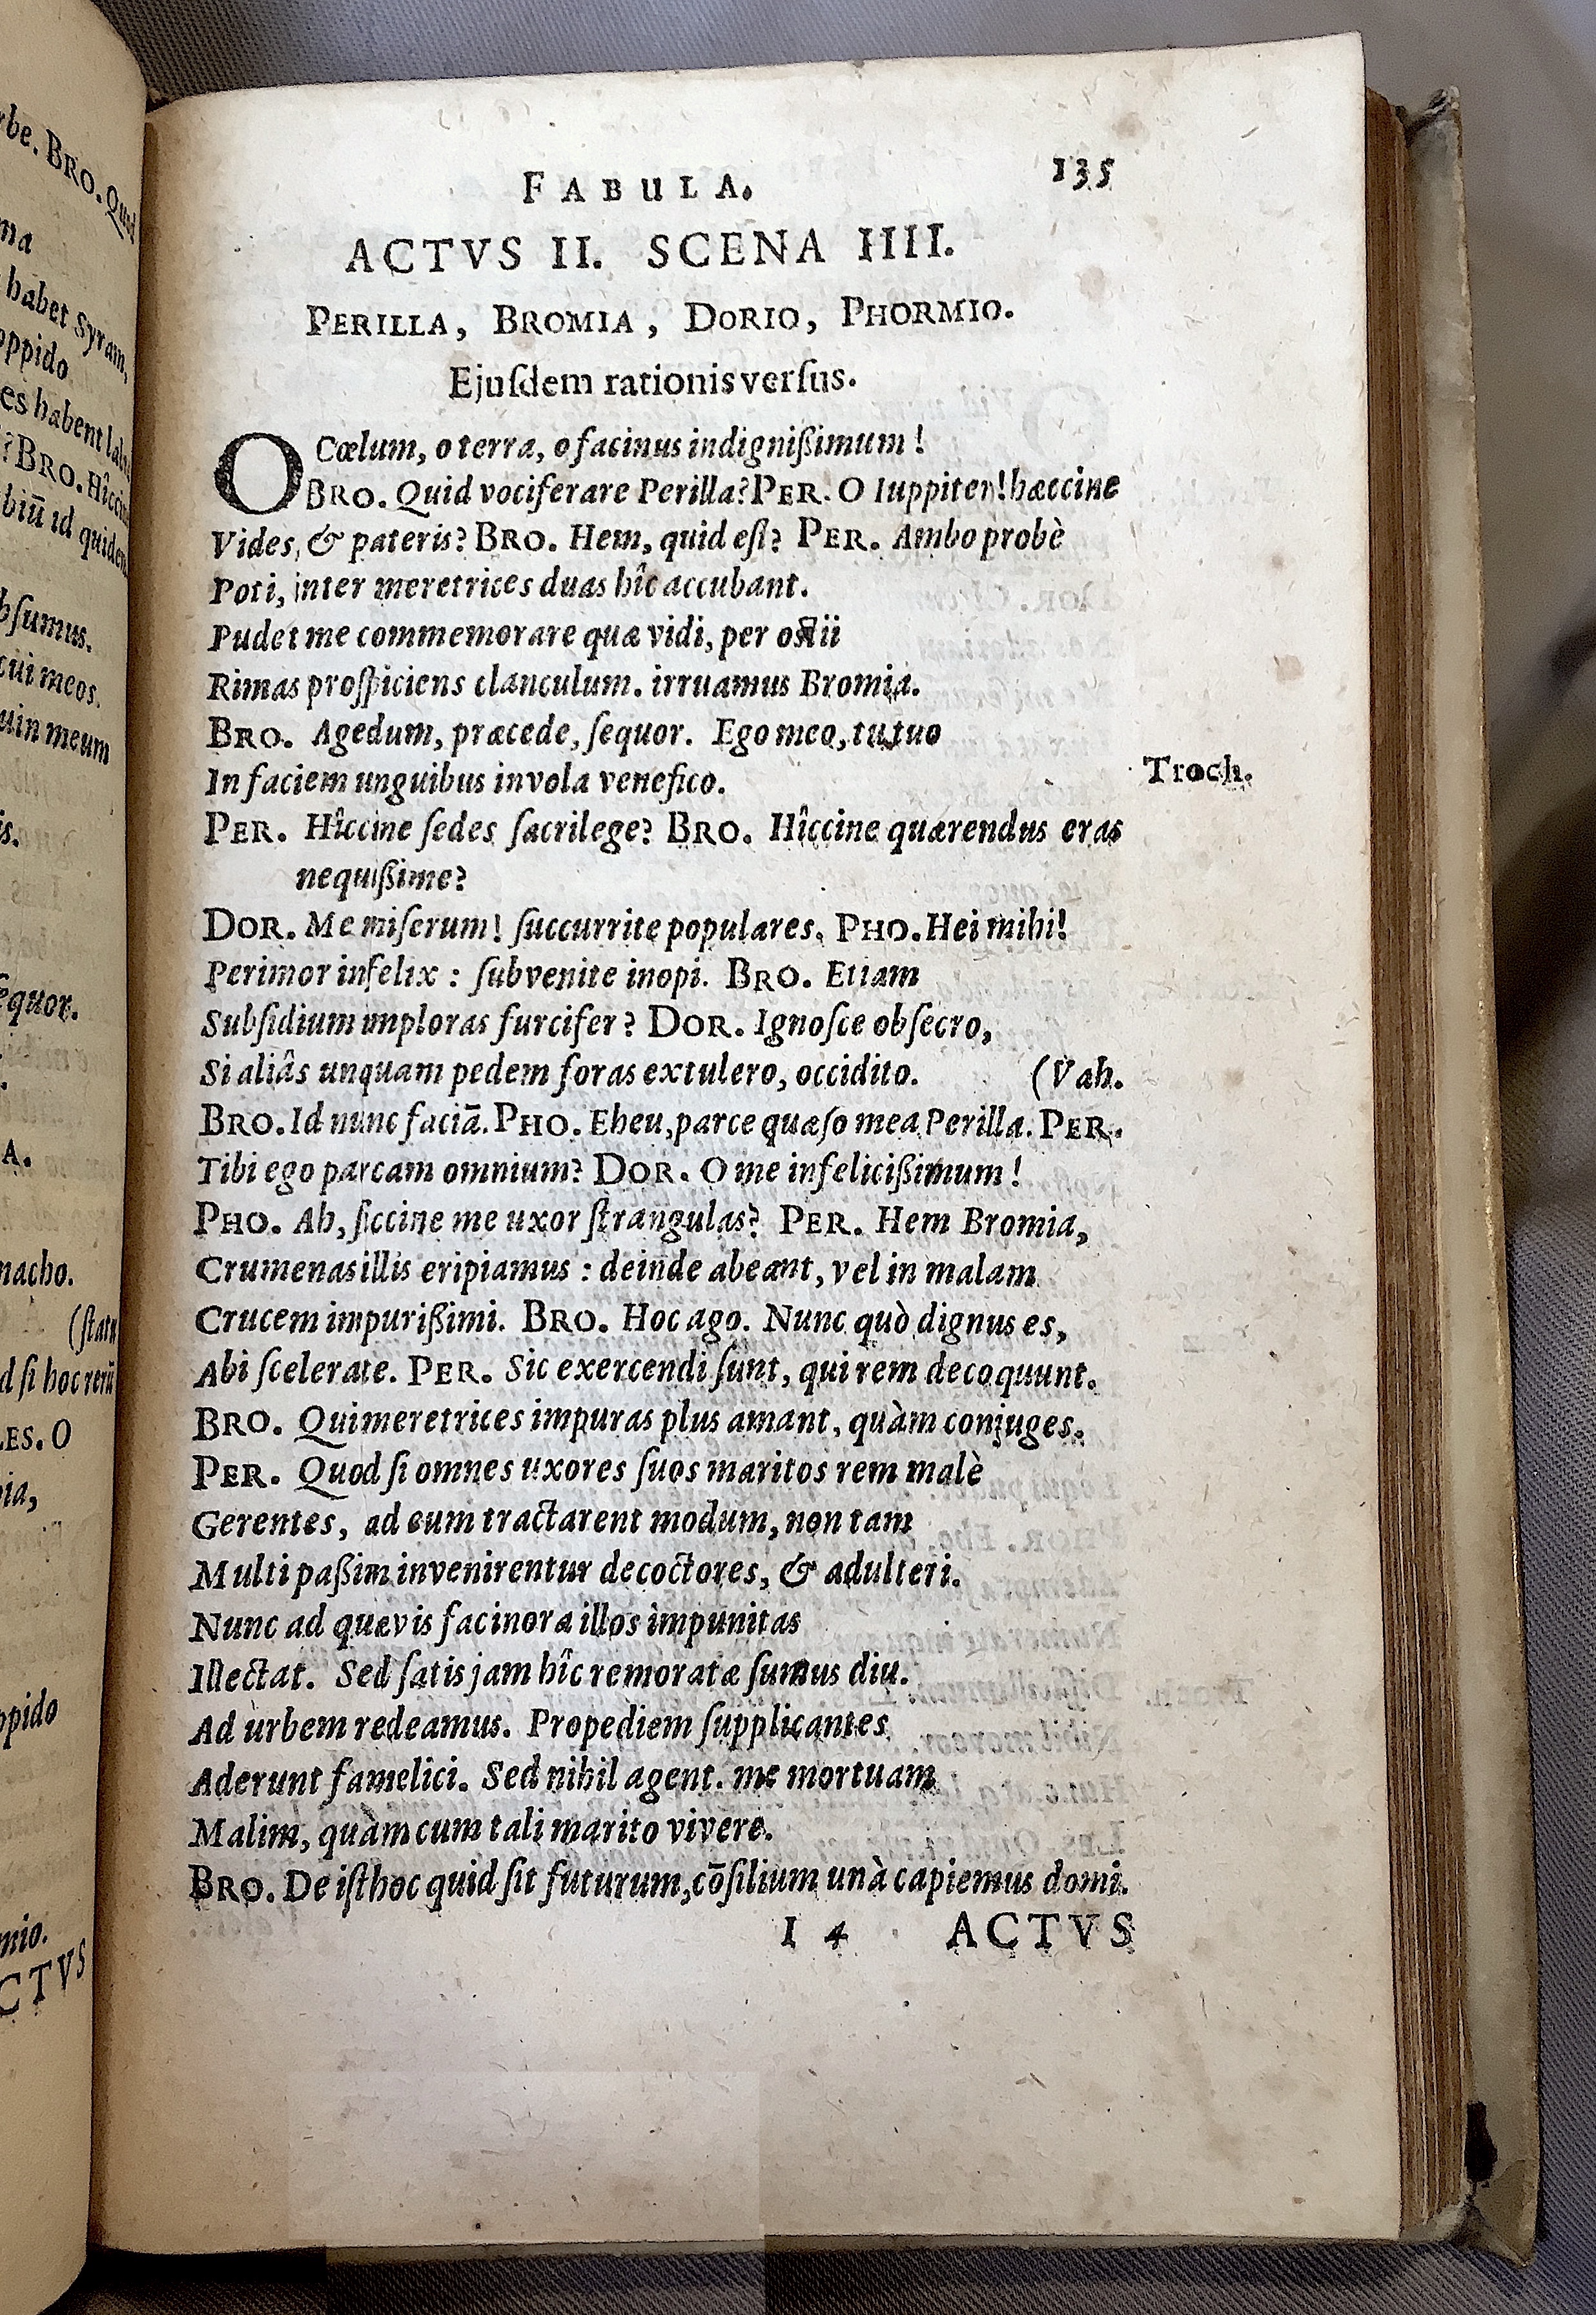 rbe. BRO. Quod
ma
habet Syram,
oppido
es habent
? BRO. Hîccine
biū id quidem
bſumus.
cui meos.
uin meum
is.
equor.
A.
nacho.
(ſtatu
d ſi hoc rerū
LES. O
pia,
ppido
mio.
CTVS
FABULA. 135
ACTVS II. SCENA IIII.
PERILLA, BROMIA, DORIO, PHORMIO.
Ejuſdem rationis verſus.
O Cœlum, o terra, o facinus indignißimum!
BRO. Quid vociferare Perilla? PER. O Iuppiter! hæccine
Vides, & pateris? BRO. Hem, quid eſt? PER. Ambo probè
Poti, inter meretrices duas hîc accubant.
Pudet me commemorare quæ vidi, per oſtii
Rimas proſpiciens clanculum. irruamus Bromia.
BRO. Agedum, præcede, ſequor. Ego meo, tu tuo
In faciem unguibus invola venefico. Troch.
PER. Hîccine ſedes ſacrilege? BRO. Hîccine quærendus eras
nequißime?
DOR. Me miſerum! ſuccurrite populares. PHO. Hei mihi!
Perimor infelix : ſubvenite inopi. BRO. Etiam
Subſidium imploras furcifer? DOR. Ignoſce obſecro,
Si aliâs unquam pedem foras extulero, occidito. (Vah.
BRO. Id nunc faciā. PHO. Eheu, parce quæſo mea Perilla. PER.
Tibi ego parcam omnium? DOR. O me infelicißimum!
PHO. Ah, ſiccine me uxor ſtrangulas? PER. Hem Bromia,
Crumenas illis eripiamus : deinde abeant, vel in malam
Crucem impurißimi. BRO. Hoc ago. Nunc quò dignus es,
Abi ſcelerate. PER. Sic exercendi ſunt, qui rem decoquunt.
BRO. Qui meretrices impuras plus amant, quàm conjuges.
PER. Quod ſi omnes uxores ſuos maritos rem malè
Gerentes, ad eum tractarent modum, non tam
Multi paßim invenirentur decoctores, & adulteri.
Nunc ad quævis facinora illos impunitas
Illectat. Sed ſatis jam hîc remoratæ ſumus diu.
Ad urbem redeamus. Propediem ſupplicantes
Aderunt famelici. Sed nihil agent. me mortuam
Malim, quàm cum tali marito vivere.
BRO. De iſthoc quid ſit futurum, cōſilium unà capiemus domi.
I 4 ACTVS